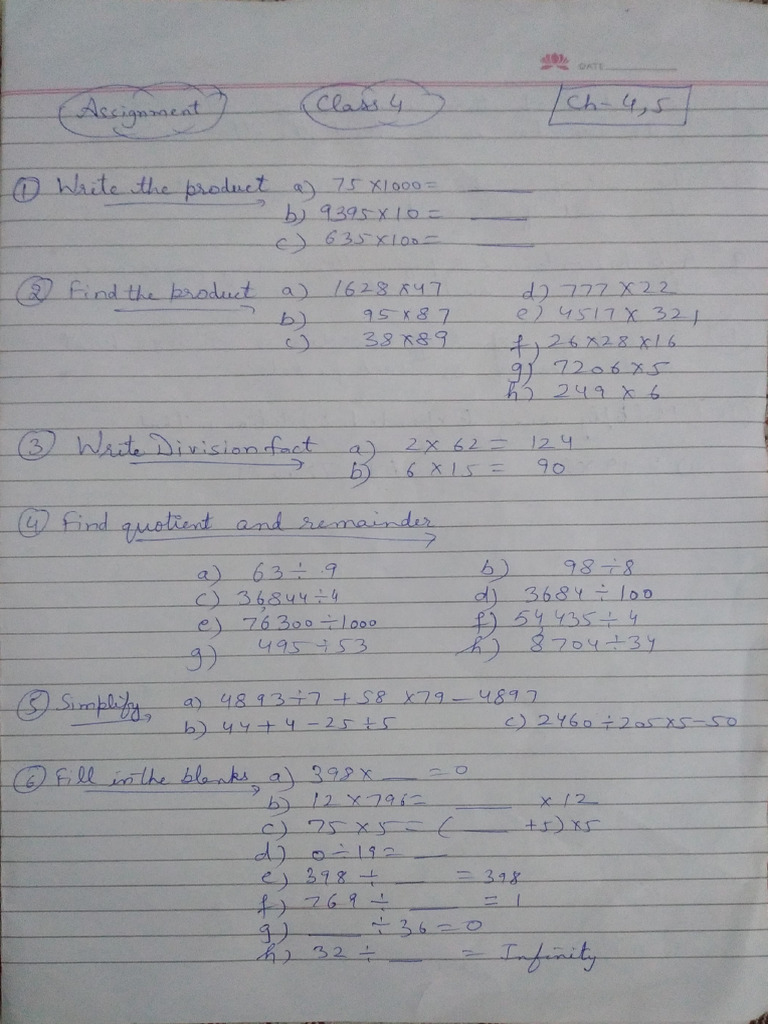 DATE
Assignment Class 4 Ch-4,5
① Write the product a) 75 x1000=
b) 9395 x 10 =
c) 635 x100=
② Find the product a) 1628 x47 d) 777 x 22
b) 95 x 87 e) 4517 x 321
c) 38 x89 f) 26x28 x16
g) 7206 x5
h) 249 x 6
③ Write Division fact a) 2 x 62 = 124
b) 6 x 15 = 90
④ Find quotient and remainder
a) 63 ÷ 9 b) 98 ÷8
c) 36,844 ÷4 d) 3684 ÷ 100
e) 76300 ÷1000 f) 54,435 ÷ 4
g) 495 ÷ 53 h) 8704 ÷34
⑤ Simplify a) 4893÷7 + 58 x79 - 4897
b) 44 + 4 - 25 ÷ 5 c) 2460 ÷205x5-50
⑥ Fill in the blanks a) 398 x __ = 0
b) 12 x796 = ____ x 12
c) 75 x 5 = ( ____ +5) x5
d) 0 ÷ 19 = __
e) 398 ÷ ___ = 398
f) 769 ÷ ____ = 1
g) ____ ÷ 36 = 0
h) 32 ÷ __ = Infinity